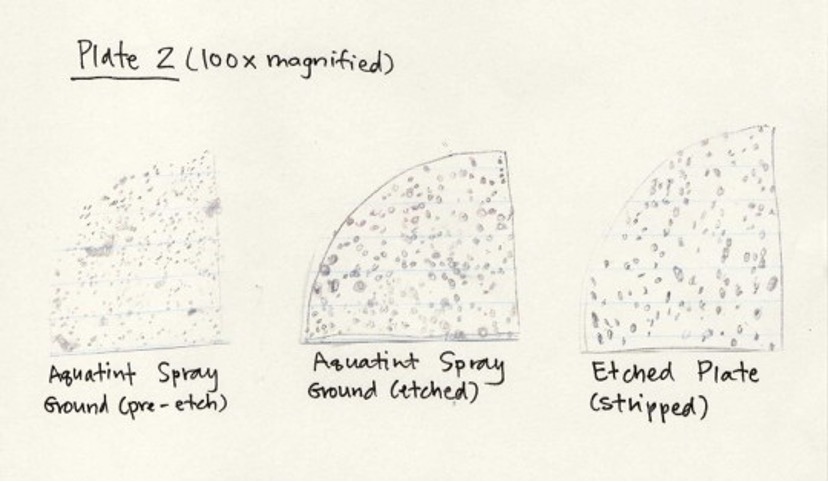 Plate 2 (100x magnified)
Aquatint Spray
Ground (pre-etch)
Aquatint Spray
Ground (etched)
Etched Plate
(stripped)